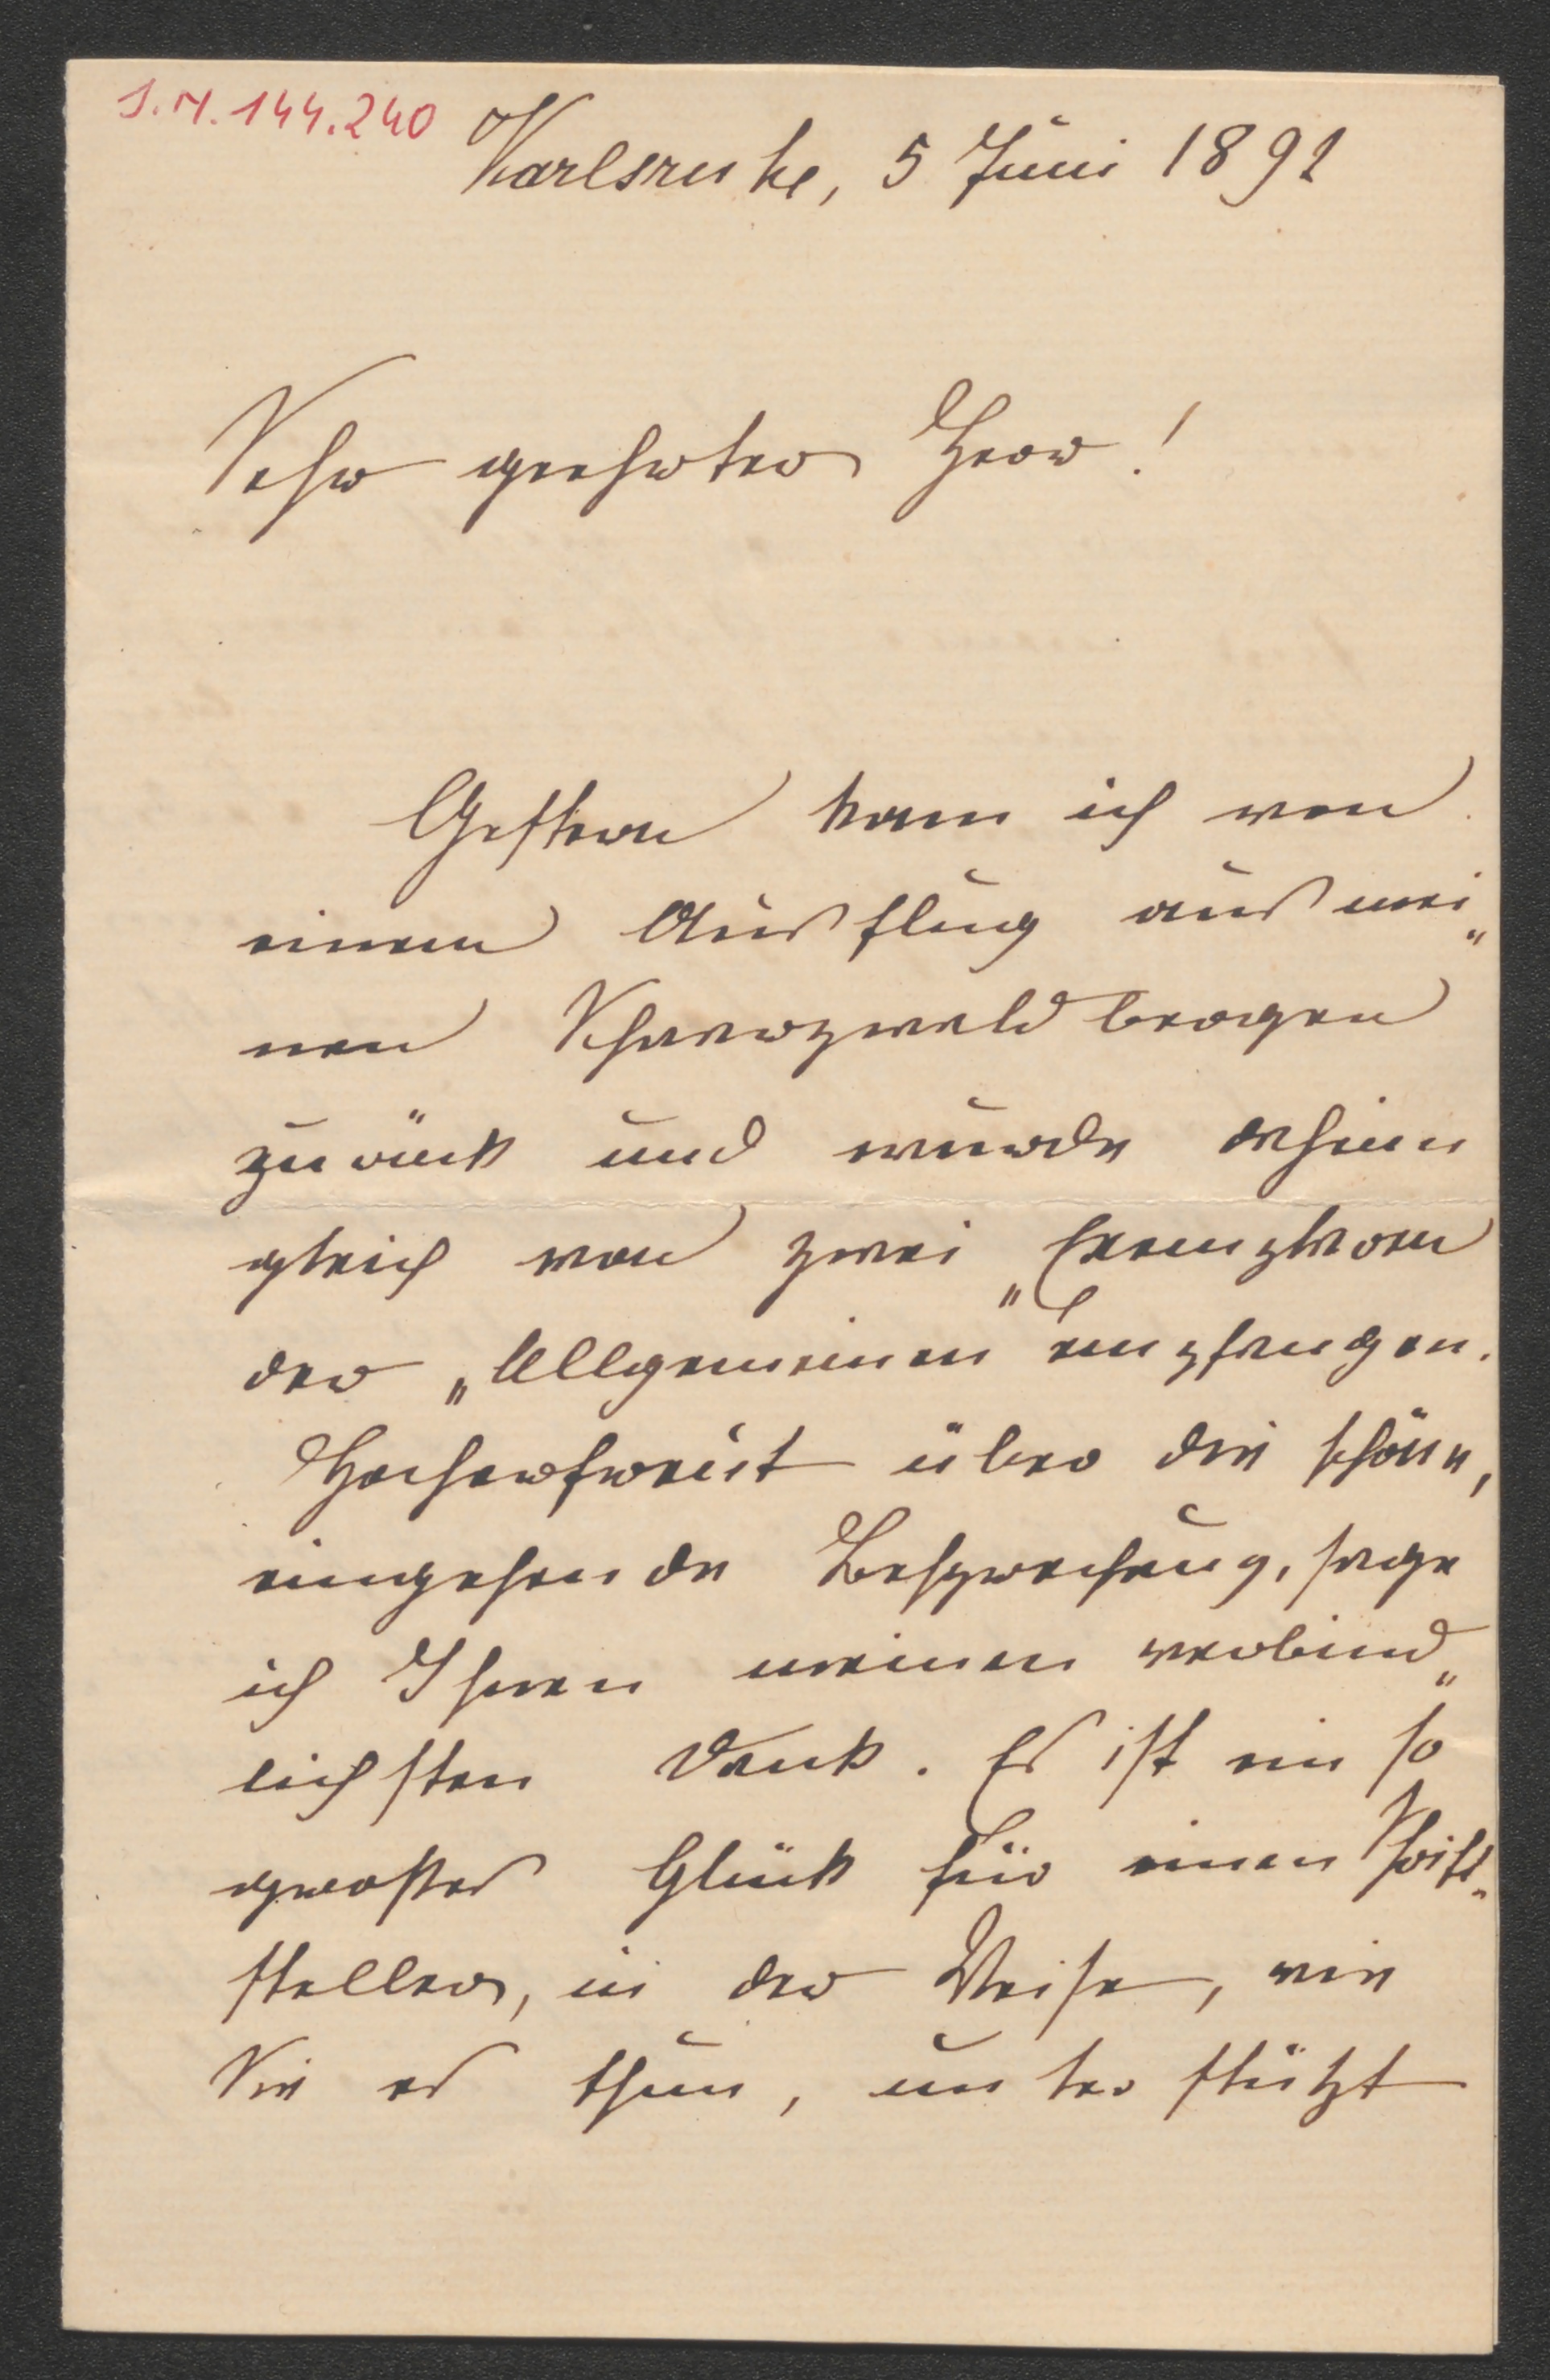 J.N. 144.240
Karlsruhe, 5 Juni 1891
Sehr geehrter Herr!
Gestern kam ich von
einem Ausflug aus mei„
nen Schwarzwaldbergen
zurück und wurde daheim
gleich von zwei Exemplaren
der „Allgemeinen" empfangen.
Hocherfreut über die schöne,
eingehende Besprechung, sage
ich Ihnen meinen verbind„
lichsten Dank. Es ist ein so
großes Glück für einen Schrift„
steller, in der Weise, wie
Sie es thun, unterstützt